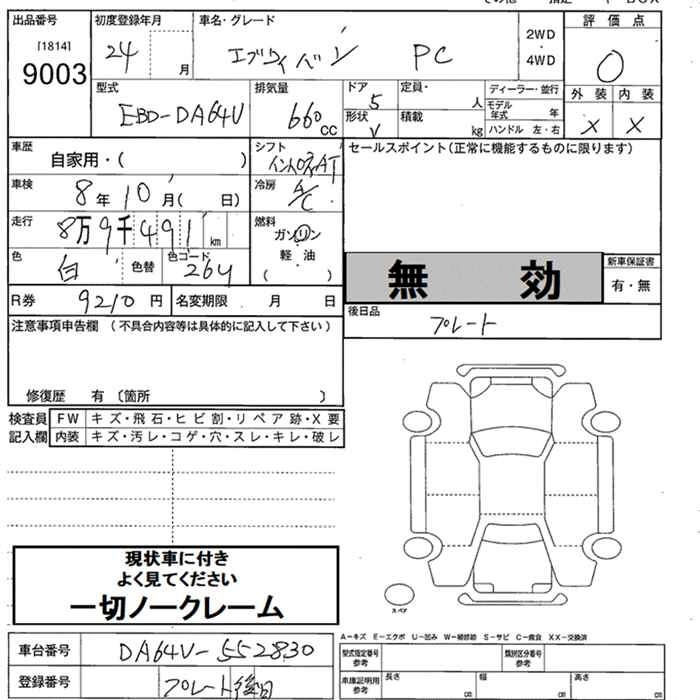 出品番号 初度登録年月 車名・グレード 2WD ・ 4WD 評価点
[1814]
9003 24 月 エブリィバン PC 0
外装 内装
X X
型式 排気量 ドア 定員・ 人 ディーラー・並行
EBD-DA64V 660 cc 5 モデル年式 年
形状 V 積載 kg ハンドル 左・右
車歴 自家用・( ) シフト インパネAT セールスポイント(正常に機能するものに限ります)
車検 8年10月( 日) 冷房 A/C
走行 8万9千491km 燃料 ガソリン
軽油
( )
色 白 色替 色コード 26U
無効 新車保証書
有・無
R券 9210円 名変期限 月 日
後日品 プレート
注意事項申告欄 (不具合内容等は具体的に記入して下さい)
修復歴 有 〔箇所 〕
検査員 FW キズ・飛石・ヒビ割・リペア跡・X要
記入欄 内装 キズ・汚レ・コゲ・穴・スレ・キレ・破レ
現状車に付き
よく見てください
一切ノークレーム
スペア
A-キズ E-エクボ U-凹み W-補修跡 S-サビ C-腐食 XX-交換済
車台番号 DA64V-552830 型式指定番号 参考 類別区分番号 参考
登録番号 プレート後日 車庫証明用 参考 長さ cm 幅 cm 高さ cm